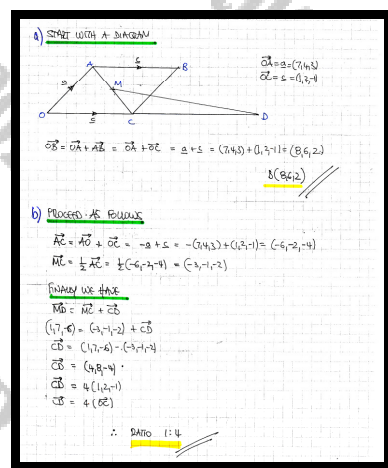 a) START WITH A DIAGRAM
A c B
OA = a = (7,4,3)
OC = c = (1,2,-1)
a M
O c C D
OB = OA + AB = OA + OC = a + c = (7,4,3) + (1,2,-1) = (8,6,2)
B(8,6,2)
b) PROCEED AS FOLLOWS
AC = AO + OC = -a + c = -(7,4,3) + (1,2,-1) = (-6,-2,-4)
MC = 1/2 AC = 1/2 (-6,-2,-4) = (-3,-1,-2)
FINALLY WE HAVE
MD = MC + CD
(1,7,-6) = (-3,-1,-2) + CD
CD = (1,7,-6) - (-3,-1,-2)
CD = (4,8,-4)
CD = 4(1,2,-1)
CD = 4(OC)
∴ RATIO 1:4